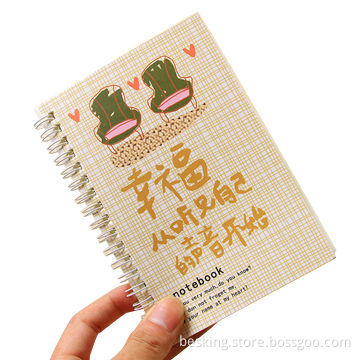 幸福
从听见自己
的声音开始
notebook
you very much, do you know?
don not froget me,
your name at my heart!
besking.store.bossgoo.com